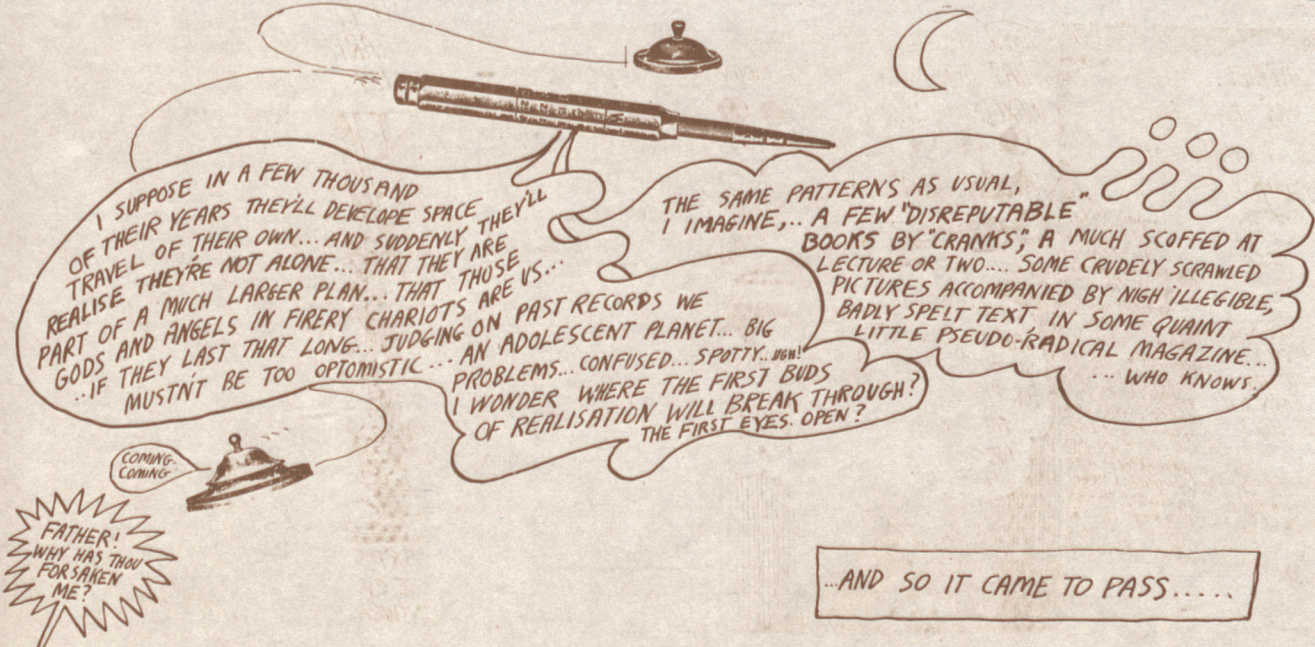 I SUPPOSE IN A FEW THOUSAND
OF THEIR YEARS THEY'LL DEVELOPE SPACE
TRAVEL OF THEIR OWN... AND SUDDENLY THEY'LL
REALISE THEY'RE NOT ALONE... THAT THEY ARE
PART OF A MUCH LARGER PLAN... THAT THOSE
GODS AND ANGELS IN FIRERY CHARIOTS ARE US...
..IF THEY LAST THAT LONG... JUDGING ON PAST RECORDS WE
MUSTN'T BE TOO OPTOMISTIC... AN ADOLESCENT PLANET... BIG
PROBLEMS... CONFUSED... SPOTTY..UGH!
I WONDER WHERE THE FIRST BUDS
OF REALISATION WILL BREAK THROUGH?
THE FIRST EYES. OPEN?
THE SAME PATTERNS AS USUAL,
I IMAGINE,.. A FEW "DISREPUTABLE"
BOOKS BY "CRANKS", A MUCH SCOFFED AT
LECTURE OR TWO.... SOME CRUDELY SCRAWLED
PICTURES ACCOMPANIED BY NIGH ILLEGIBLE,
BADLY SPELT TEXT IN SOME QUAINT
LITTLE PSEUDO-RADICAL MAGAZINE...
... WHO KNOWS..
COMING.
COMING
FATHER!
WHY HAS THOU
FORSAKEN
ME?
...AND SO IT CAME TO PASS.....